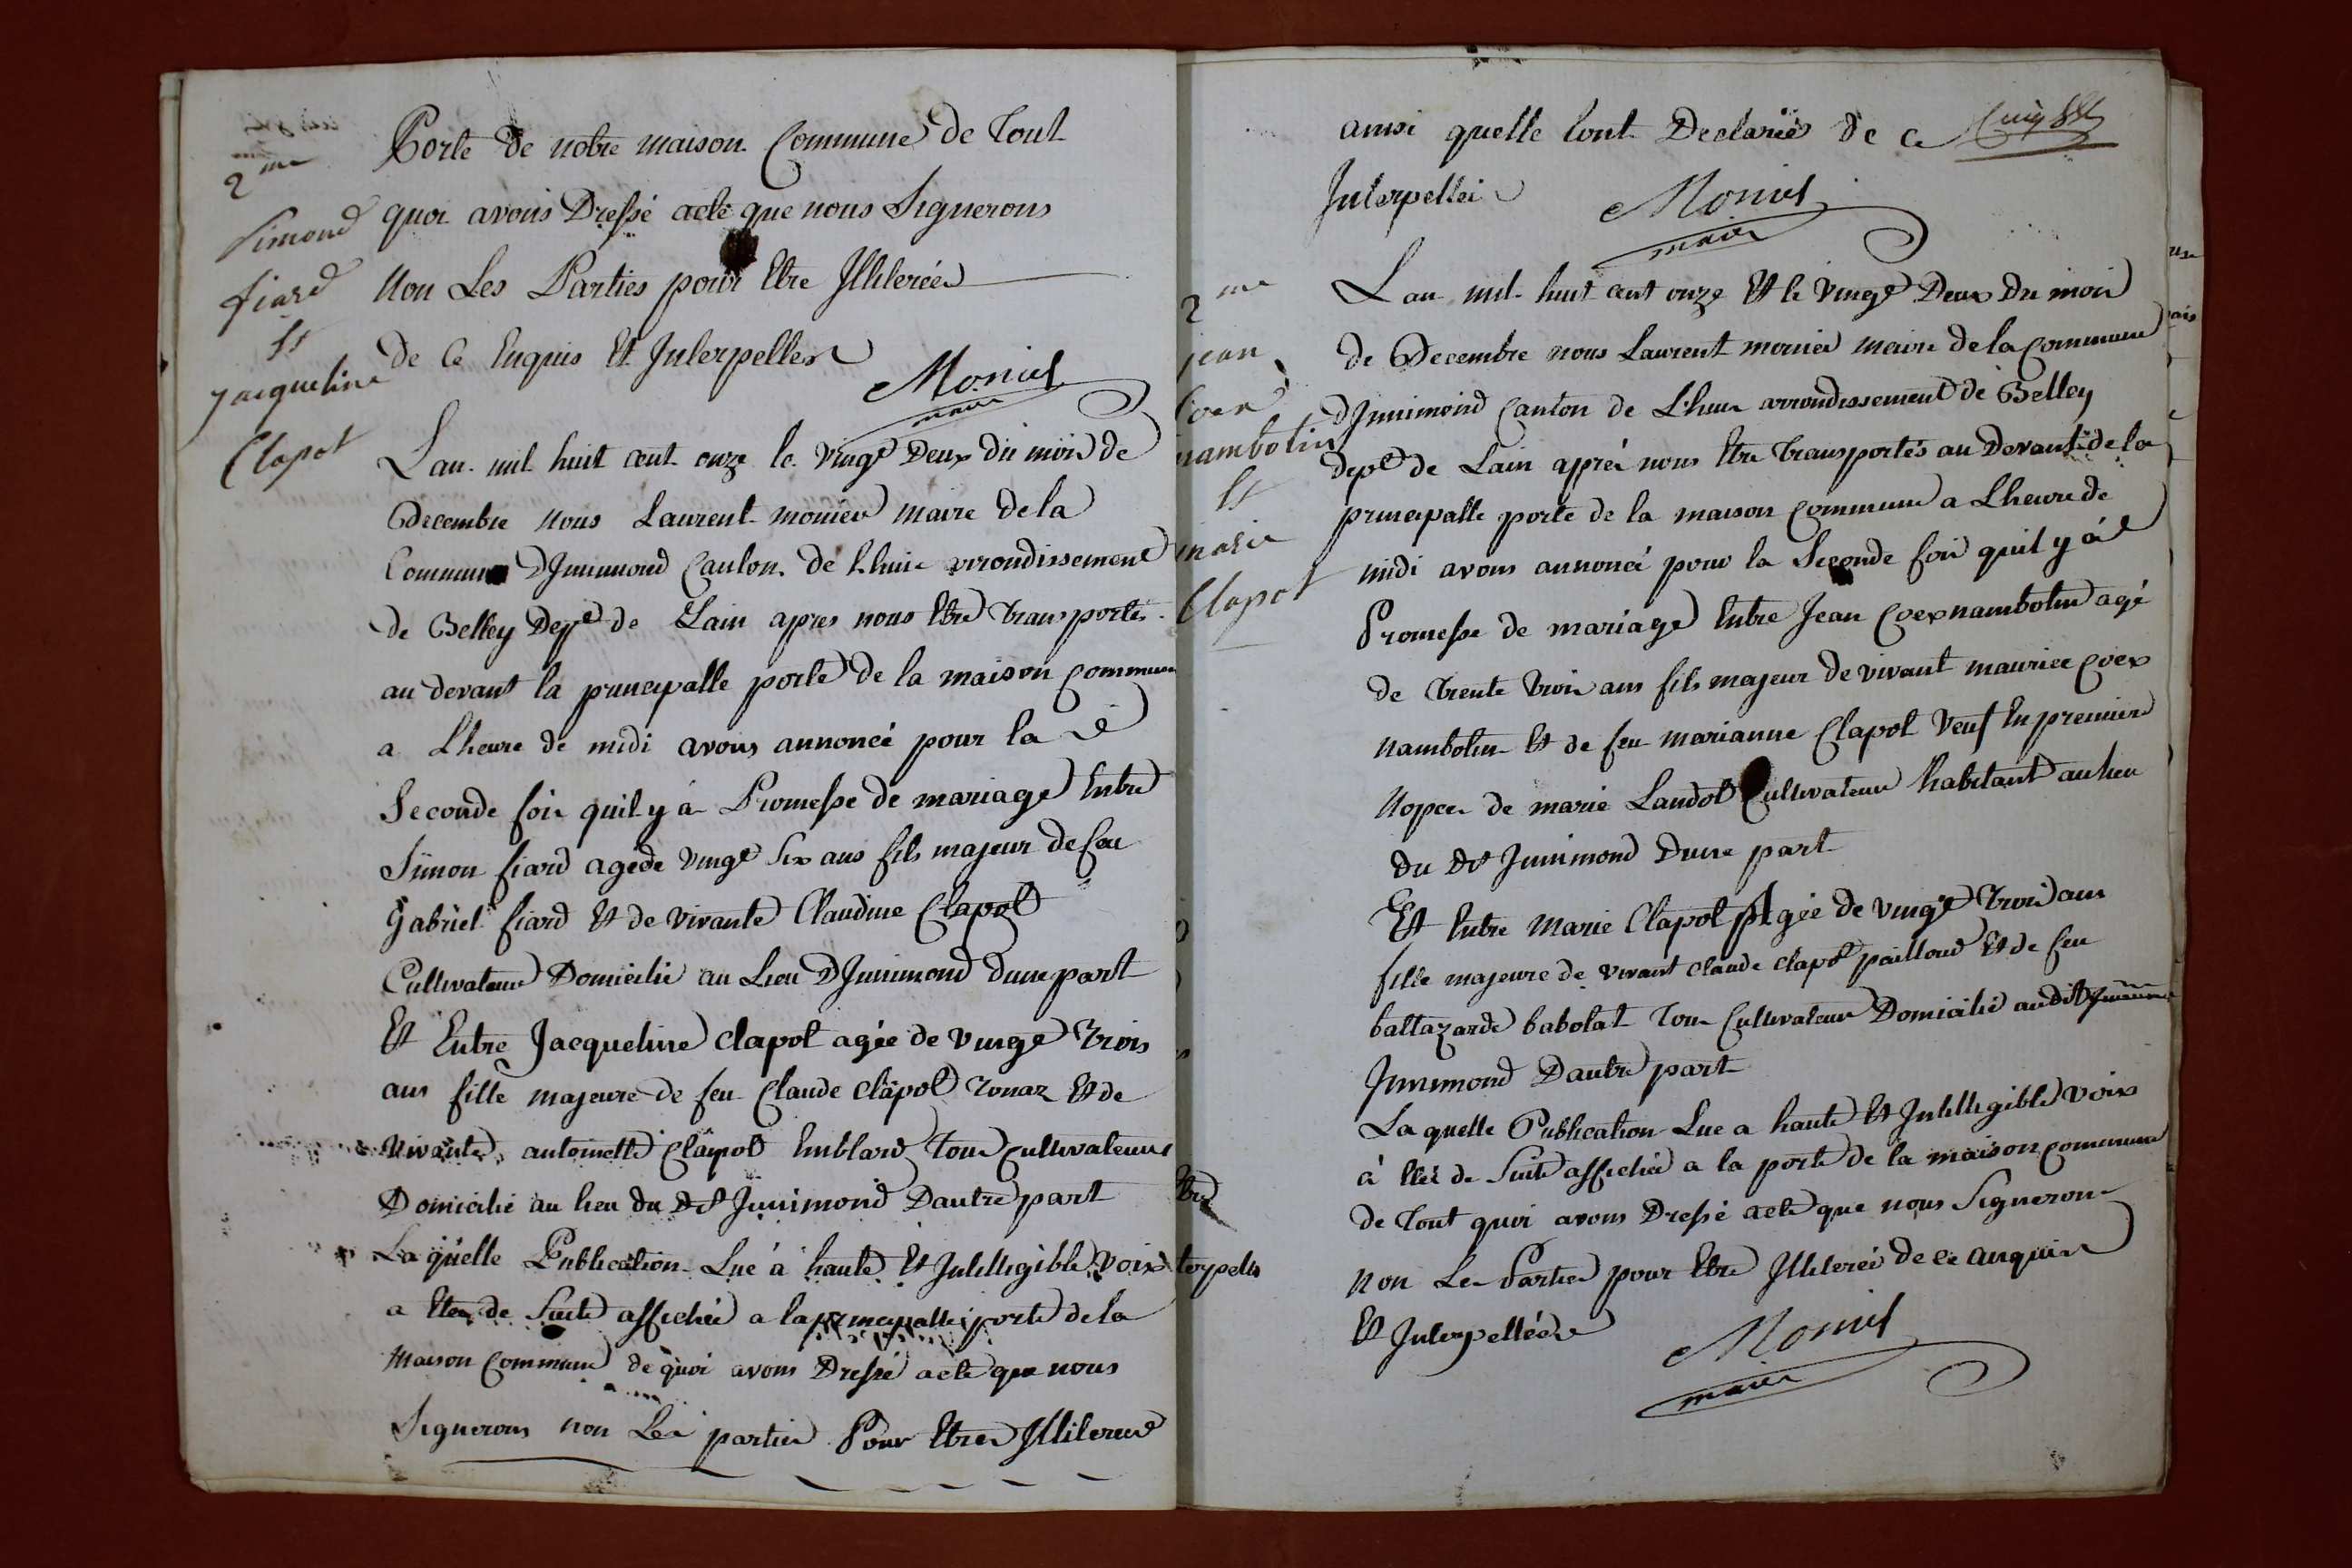 2me
Simond
fiard
Et
jacqueline
Clapot
Porte de notre maison Commune de Tout
quoi avons Dressé acte que nous Signerons
Non Les Parties pour Etre Illiterées
de Ce Enquis Et Interpelles
Monier
maire
Lan mil huit cent onze le vingt Deux du mois de
Decembre Nous Laurent monier maire de la
Commune DJnnimond Canton de Lhuis arrondissement
de Belley Dept de Lain apres nous Etre Transportés
au devant la principalle porte de la maison Commune
a Lheure de midi avons annoncé pour la
Seconde fois quil y à Promesse de mariage Entre
Simon fiard agé de vingt Six ans fils majeur de feu
Gabriel fiard Et de vivante Claudine Clapot
Cultivateur Domicilié au Lieu DJnnimond Dune part
Et Entre Jacqueline Clapot agée de vingt Trois
ans fille majeure de feu Claude Clapot Tonaz Et de
vivante antoinette Clapot Emblard Tous Cultivateurs
Domicilié au lieu du Dt Jnnimond Dautre part
La quelle Publication Lue à haute Et Jntelligible voix
a Etée de Suite affichée a la principalle porte de la
Maison Commune de quoi avons Dressé acte que nous
Signerons non Les parties Pour Etres Jlliterées
ainsi quelle lont Declarées de ce
Interpelléé
Monier
maire
2me
jean
Coex
nambotin
Et
marie
Clapot
Lan mil huit cent onze Et le vingt Deux Du mois
de Decembre nous Laurent monier maire de la Commune
DJnnimond Canton de Lhuis arrondissement de Belley
dept de Lain aprés nous Etre Transportés au Devant de la
principalle porte de la maison Commune a Lheure de
midi avons annoncé pour la Seconde fois quil y à
Promesse de mariage Entre Jean Coex nambotin agé
de Trente Trois ans fils majeur de vivant maurice Coex
Nambotin Et de feu marianne Clapot Veuf En premiere
Nopces de marie Landot Cultivateur habitant au lieu
du Dt Jnnimond Dune part
Et Entre Marie Clapot Agée de vingt Trois ans
fille majeure de vivant claude clapot pailloud Et de feu
baltazarde babolat Tous Cultivateur Domicilié audit
Jnnimond Dautre part
La quelle Publication Lue a haute Et Jntelligible voix
à Eté de Suite affichée a la porte de la maison commune
de Tout quoi avons Dressé acte que nous Signerons
Non Les Parties pour Etre Jlliterée de ce anquis
Et Interpellées
Monier
maire